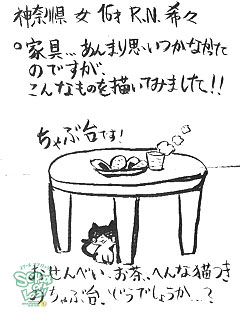 神奈川県 女 16才 R.N. 希々
○家具…あんまり思いつかなかった
のですが
こんなものを描いてみました!!
ちゃぶ台です!
おせんべい、お茶、へんな猫つき
のちゃぶ台、どうでしょうか…?